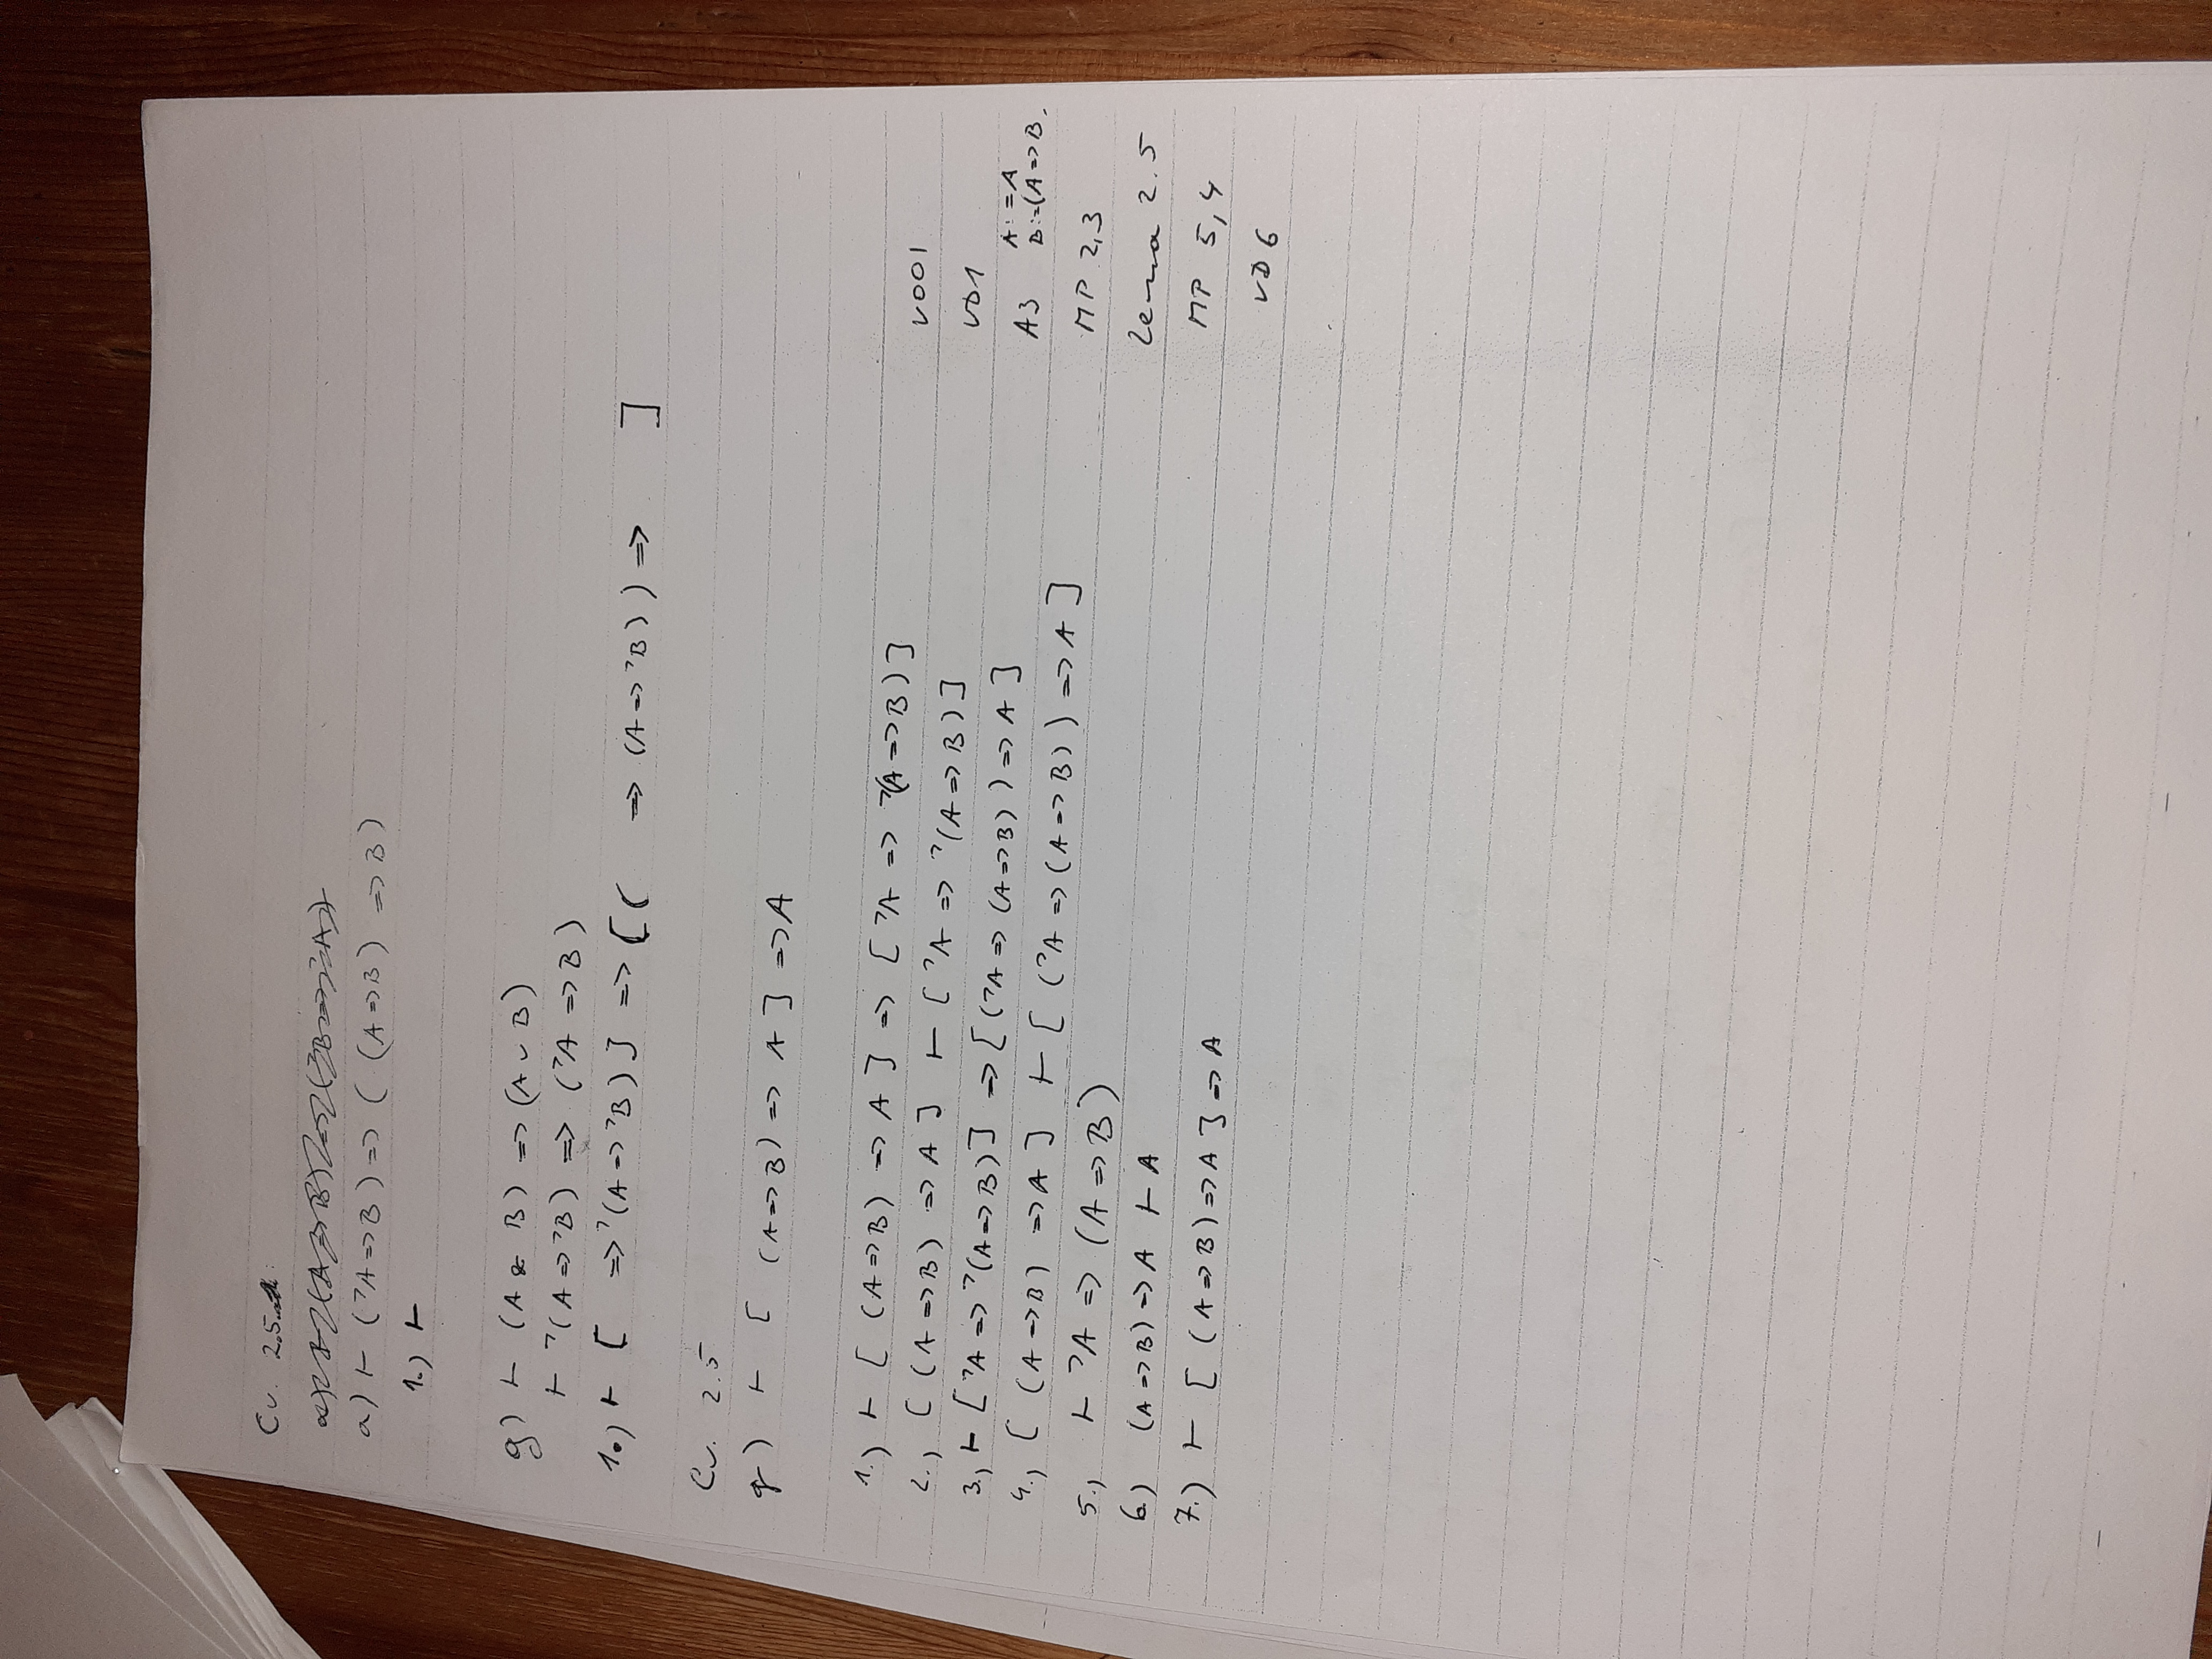 Cv. 2.5
a) ⊢ (ㄱA => B) => ( (A => B) => B)
1.) ⊢
g) ⊢ (A & B) => (A ∨ B)
⊢ ㄱ(A => ㄱB) => (ㄱA => B)
1.) ⊢ [ => ㄱ(A => ㄱB)] => [( => (A => ㄱB)) => ]
Cv. 2.5
⊢ [ (A => B) => A ] => A
1.) ⊢ [ (A => B) => A ] => [ ㄱA => ㄱ(A => B)] VOOI
2.) [ (A => B) => A ] ⊢ [ ㄱA => ㄱ(A => B)] VD1
3.) ⊢ [ㄱA => ㄱ(A => B)] => [(ㄱA => (A => B)) => A ] A3 A:=A B:=(A => B)
4.) [ (A => B) => A ] ⊢ [ (ㄱA => (A => B)) => A ] MP 2,3
5.) ⊢ ㄱA => (A => B) Lema 2.5
6.) (A => B) => A ⊢ A MP 5,4
7.) ⊢ [ (A => B) => A ] => A VD 6